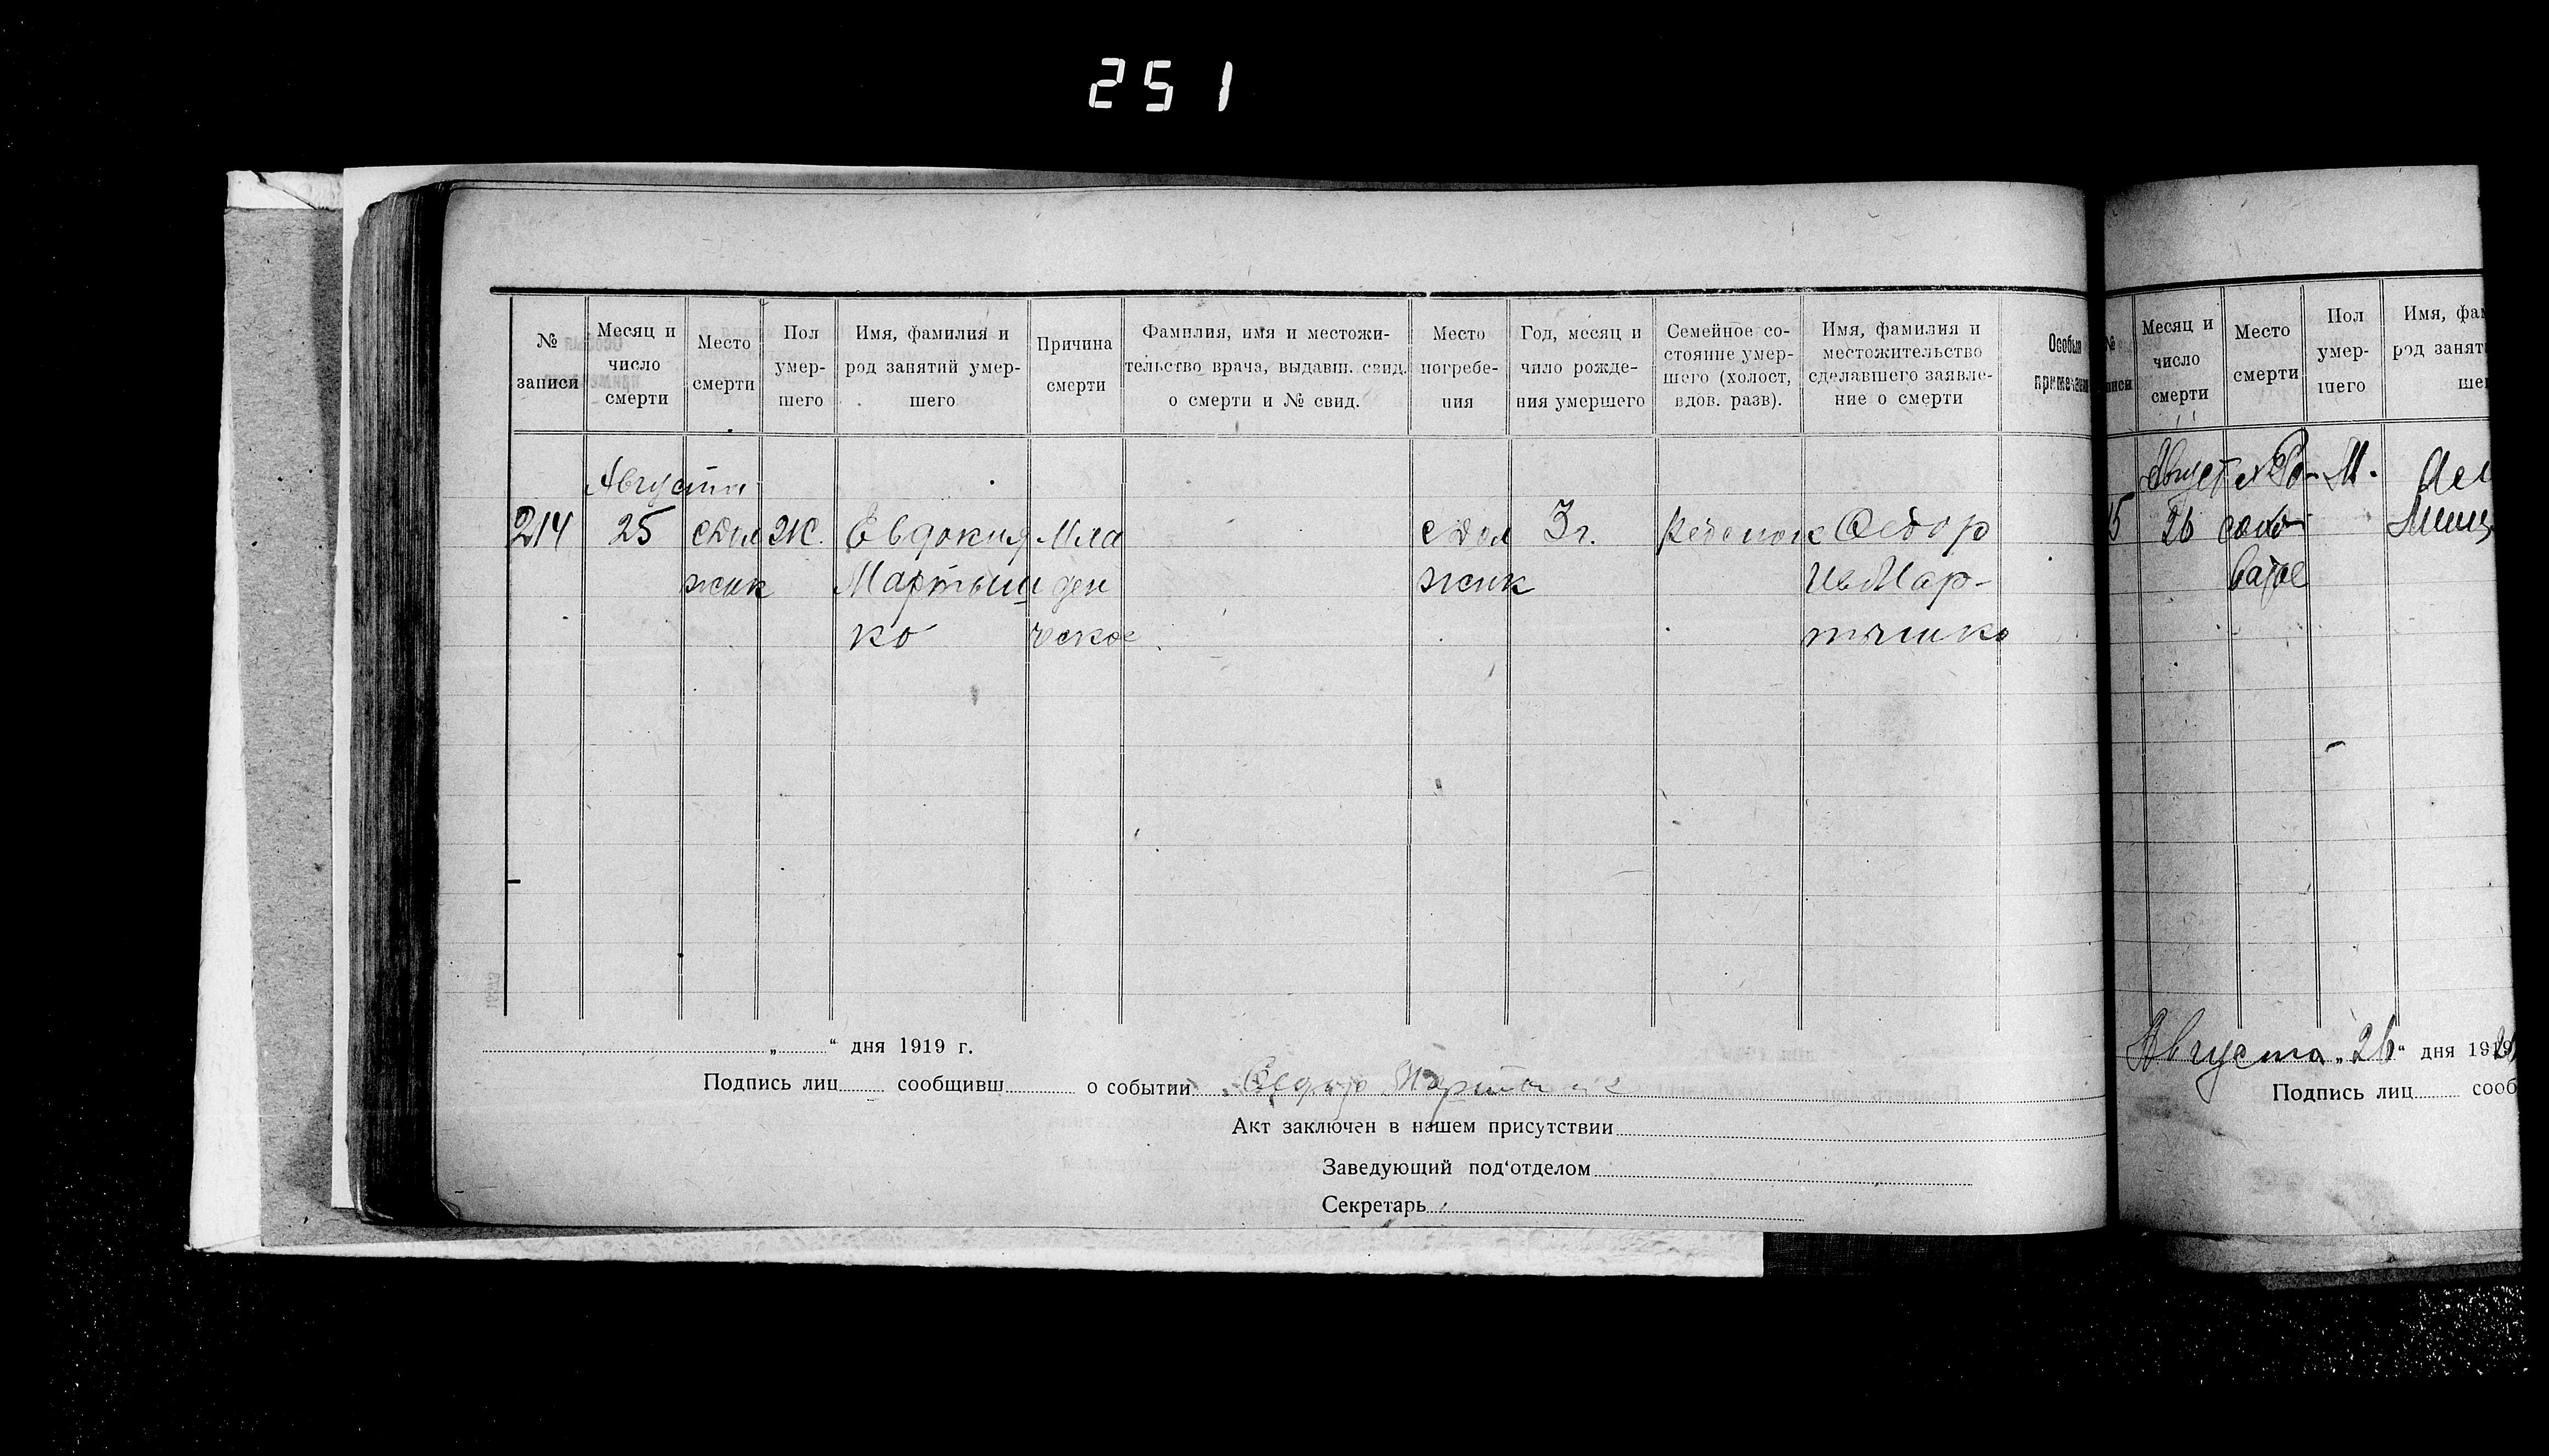 251
№ записи
Месяц и число смерти
Место смерти
Пол умер-шего
Имя, фамилия и род занятий умер-шего
Причина смерти
Фамилия, имя и местожи-тельство врача, выдавш. свид. о смерти и № свид.
Место погребе-ния
Год, месяц и чило рожде-ния умершего
Семейное со-стояние умер-шего (холост, вдов. разв).
Имя, фамилия и местожительство сделавшего заявле-ние о смерти
Особыя примечания
Августа
214 25 с Дол Ж. Евдокия Мла с Дол 3 г. Ребенок Федор
жик Мартыш ден жик Ив Мар-
ко ческое тышко
„ “ дня 1919 г.
Подпись лиц сообщивш о событии Федор
Акт заключен в нашем присутствии
Заведующий под‘отделом
Секретарь
Месяц и число смерти
Место смерти
Пол умер-шего
Имя, фа
род занят
ше
Август М.
15 26
Августа „ 26 “ дня 19
Подпись лиц сооб